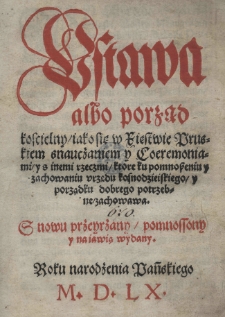 Vstawa
albo porząd
kościelny / iako się w Xięstwie Prus-
kiem s nauczaniem y Cæremonia-
mi / y s inemi rzeczmi / ktore ku pomnożeniu y
zachowaniu vrzędu kaznodzieyskiego / y
porządku dobrego potrzeb-
ne / zachowawa.
S nowu przeyrzany / pomnożony
y na iawią wydany.
Roku narodzenia Pańskiego
M. D. LX.